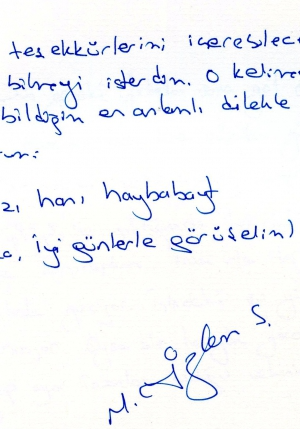 teşekkürlerini içerebilec
bilmeyi isterdim. O kelime
bildiğin en anlamlı dilekle
hanı haybabayt
iyi günlerle görüşelim)
M. Özlem S.